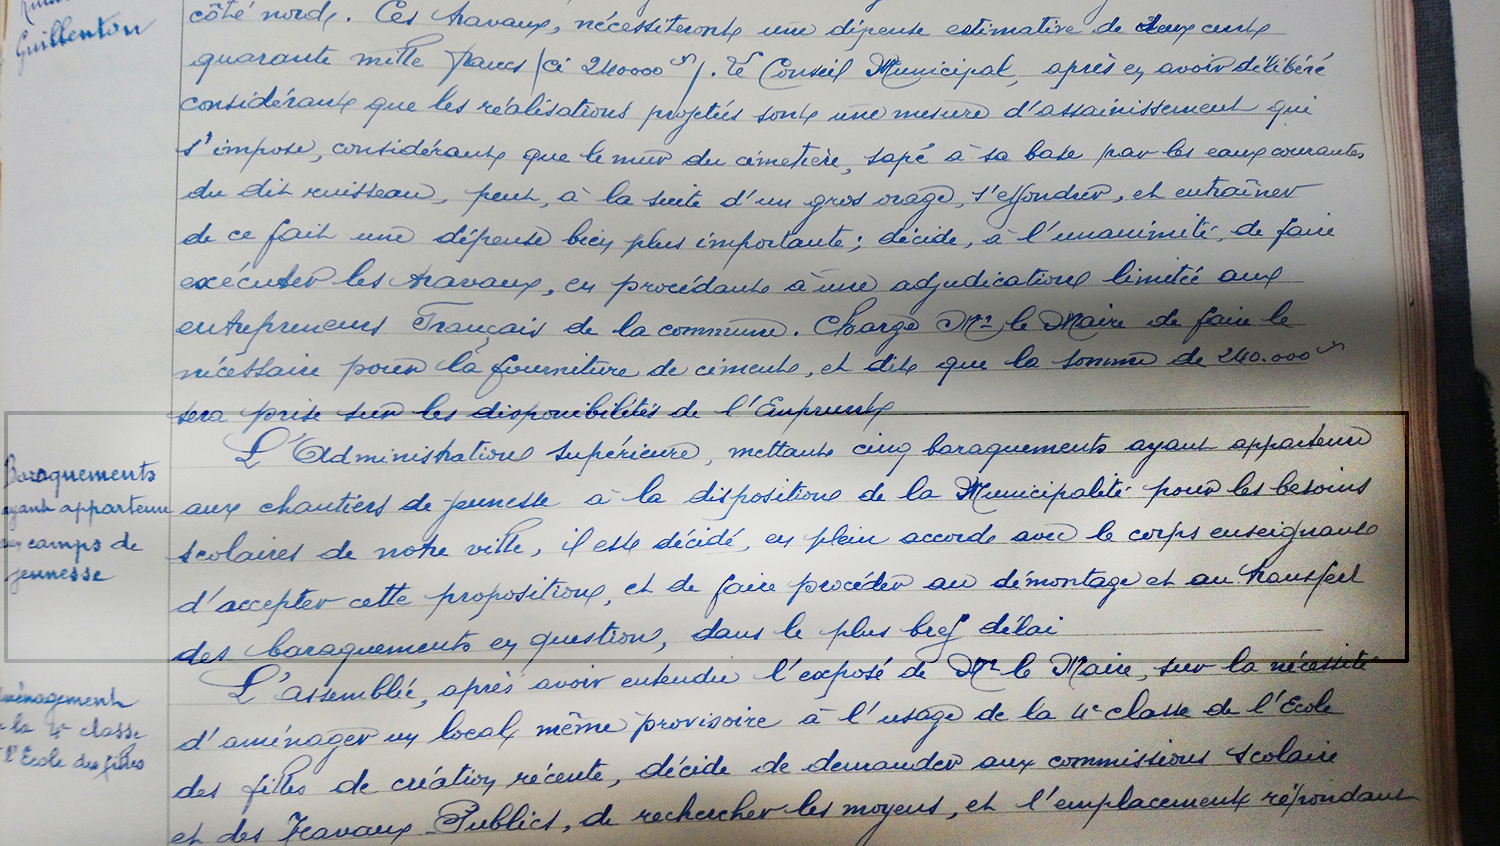 Guillenton
côté nord. Ces travaux, nécessiteront une dépense estimative de deux cent
quarante mille francs (ci 240000 frs). Le Conseil Municipal, après en avoir délibéré
considérant que les réalisations projetées sont une mesure d'assainissement qui
s'impose, considérant que le mur du cimetière, sapé à sa base par les eaux courantes
du dit ruisseau, peut, à la suite d'un gros orage, s'effondrer, et entraîner
de ce fait une dépense bien plus importante; décide, à l'unanimité, de faire
exécuter les travaux, en procédant à une adjudication limitée aux
entrepreneurs Français de la commune. Charge Mr le Maire de faire le
nécessaire pour la fourniture de ciment, et dit que la somme de 240.000 frs
sera prise sur les disponibilités de l'Emprunt
L'Administration supérieure, mettant cinq baraquements ayant appartenu
aux chantiers de jeunesse à la disposition de la Municipalité pour les besoins
scolaires de notre ville, il est décidé, en plein accord avec le corps enseignant
d'accepter cette proposition, et de faire procéder au démontage et au transfert
des baraquements en question, dans le plus bref délai
Baraquements
ayant appartenu
aux camps de
jeunesse
L'assemblée, après avoir entendu l'exposé de Mr le Maire, sur la nécessité
d'aménager un local même provisoire à l'usage de la 4e classe de l'Ecole
des filles de création récente, décide de demander aux commissions scolaire
et des Travaux Publics, de rechercher les moyens, et l'emplacement répondant
aménagement
la 4e classe
l'Ecole des filles